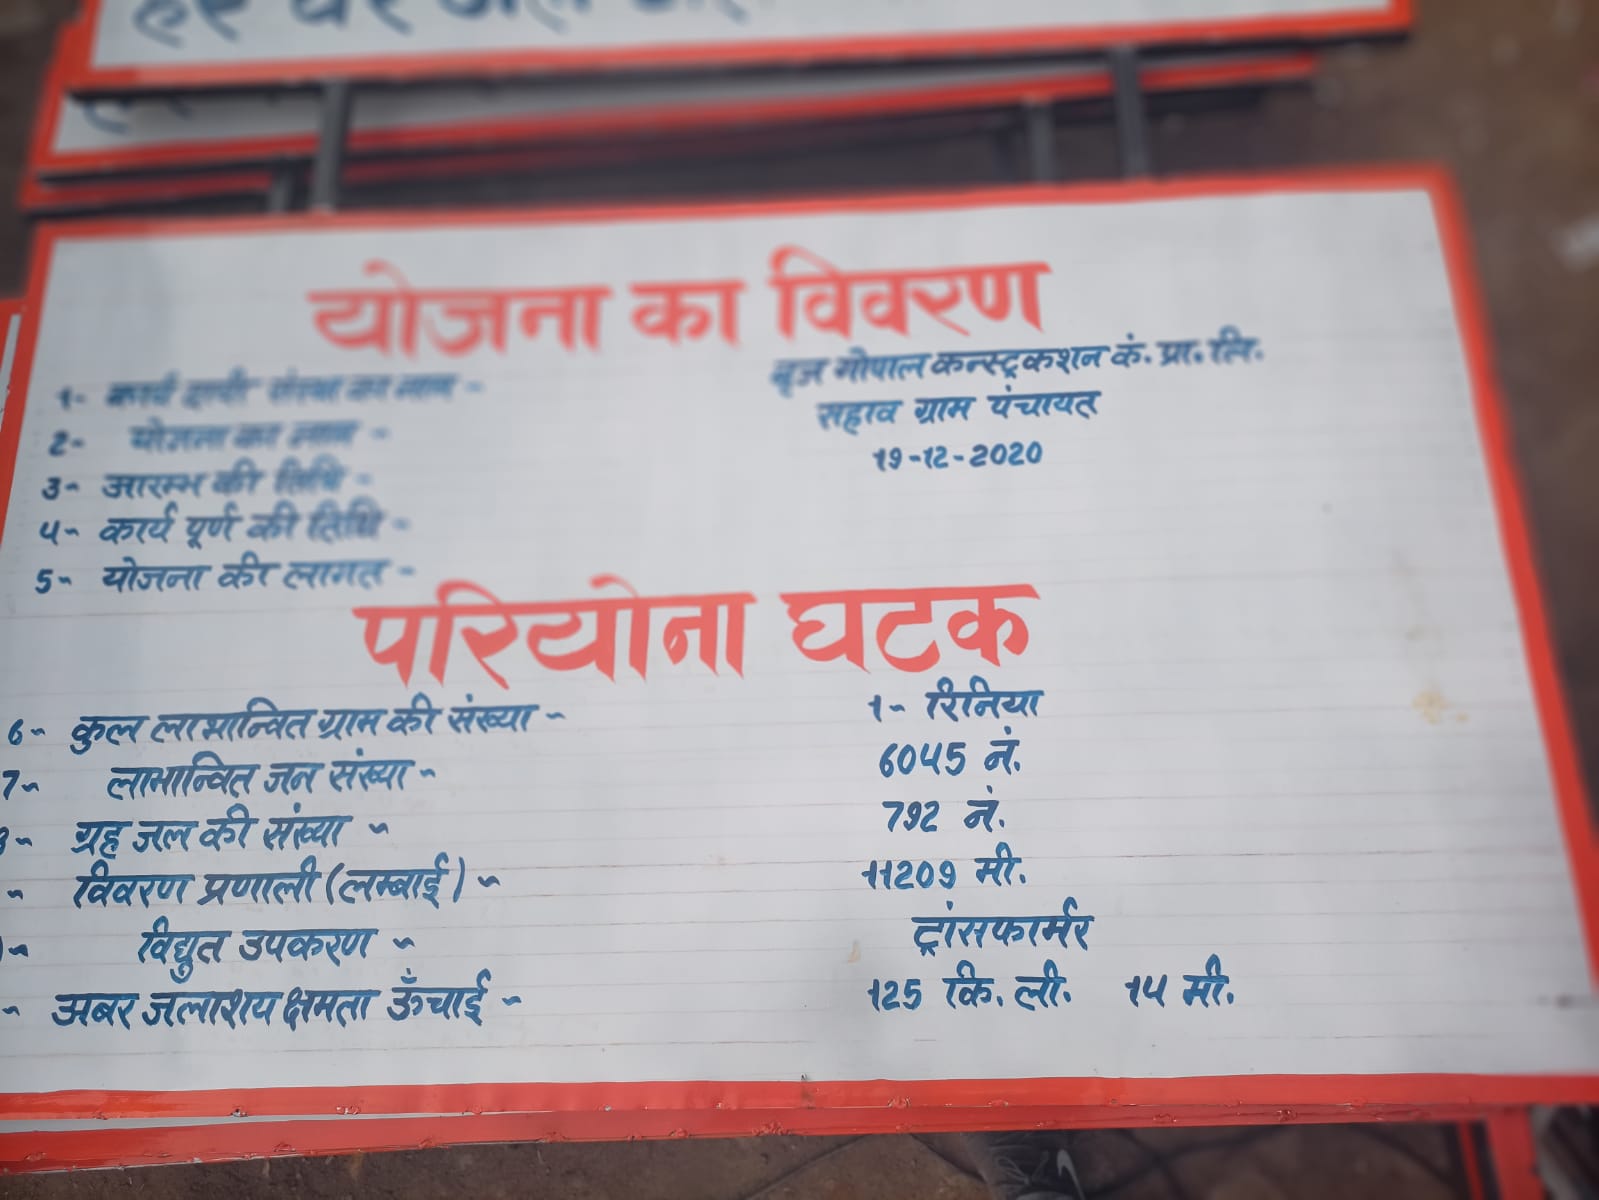 हर घर जल
योजना का विवरण
1- कार्य दायी संस्था का नाम - बृज गोपाल कन्स्ट्रकशन कं. प्रा. लि.
2- योजना का नाम - सहाव ग्राम पंचायत
3- आरम्भ की तिथि - 19-12-2020
4- कार्य पूर्ण की तिथि -
5- योजना की लागत -
परियोना घटक
6- कुल लाभान्वित ग्राम की संख्या - 1- रिनिया
7- लाभान्वित जन संख्या - 6045 नं.
ग्रह जल की संख्या - 792 नं.
- विवरण प्रणाली (लम्बाई) - 11209 मी.
- विद्युत उपकरण - ट्रांसफार्मर
- अबर जलाशय क्षमता ऊँचाई - 125 कि. ली. 14 मी.